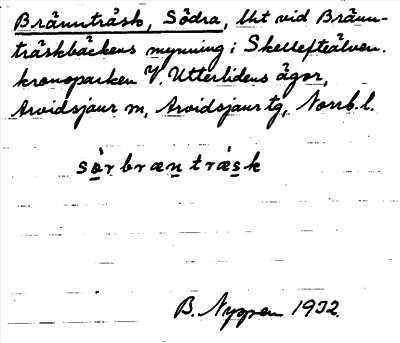 Brännträsk, Södra, lht vid Bränn-
träskbäckens mynning i Skellefteälven.
kronoparken V. Utterlidens ägor,
Arvidsjaur sn, Arvidsjaur tg, Norrb. l.
sörbræn träsk
B. Nyppen 1932.